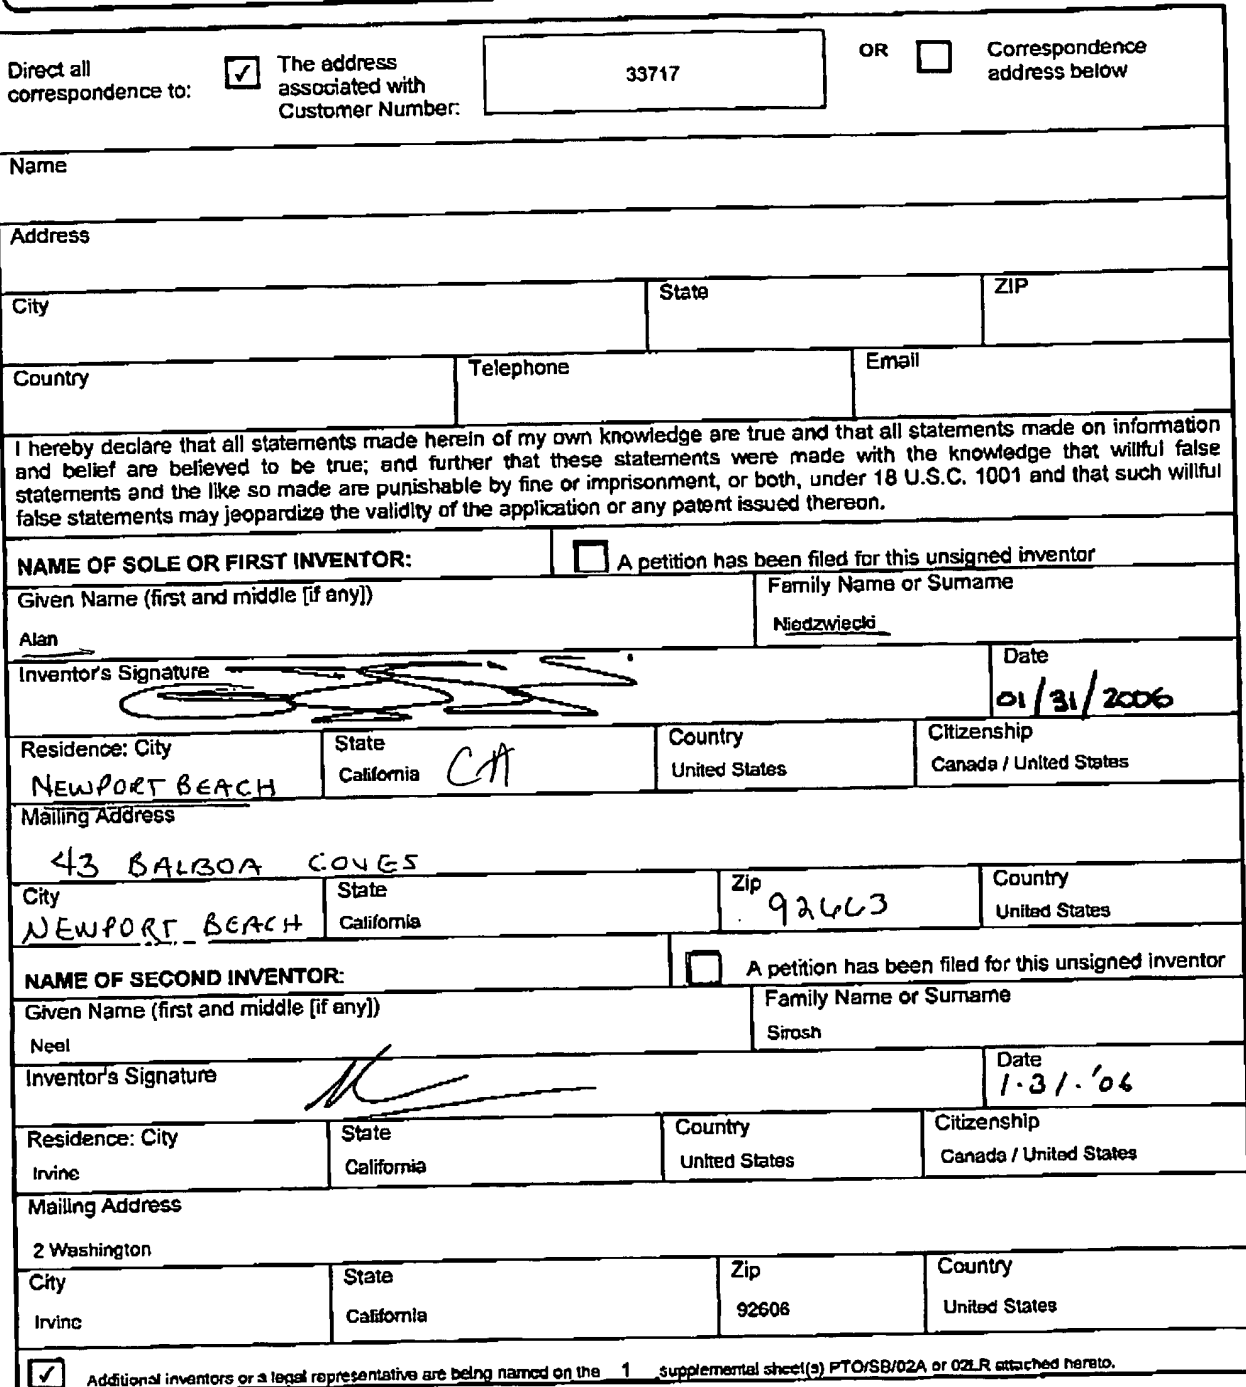 Direct all correspondence to: ✓ The address associated with Customer Number: 33717 OR Correspondence address below
Name
Address
City State ZIP
Country Telephone Email
I hereby declare that all statements made herein of my own knowledge are true and that all statements made on information
and belief are believed to be true; and further that these statements were made with the knowledge that willful false
statements and the like so made are punishable by fine or imprisonment, or both, under 18 U.S.C. 1001 and that such willful
false statements may jeopardize the validity of the application or any patent issued thereon.
NAME OF SOLE OR FIRST INVENTOR: A petition has been filed for this unsigned inventor
Given Name (first and middle [if any]) Family Name or Surname
Alan Niedzwiecki
Inventor's Signature Date
01/31/2006
Residence: City State Country Citizenship
NEWPORT BEACH California CA United States Canada / United States
Mailing Address
43 BALBOA COVES
City State Zip Country
NEWPORT BEACH California 92663 United States
NAME OF SECOND INVENTOR: A petition has been filed for this unsigned inventor
Given Name (first and middle [if any]) Family Name or Surname
Neel Sirosh
Inventor's Signature Date
1.31.'06
Residence: City State Country Citizenship
Irvine California United States Canada / United States
Mailing Address
2 Washington
City State Zip Country
Irvine California 92606 United States
✓ Additional inventors or a legal representative are being named on the 1 supplemental sheet(s) PTO/SB/02A or 02LR attached hereto.